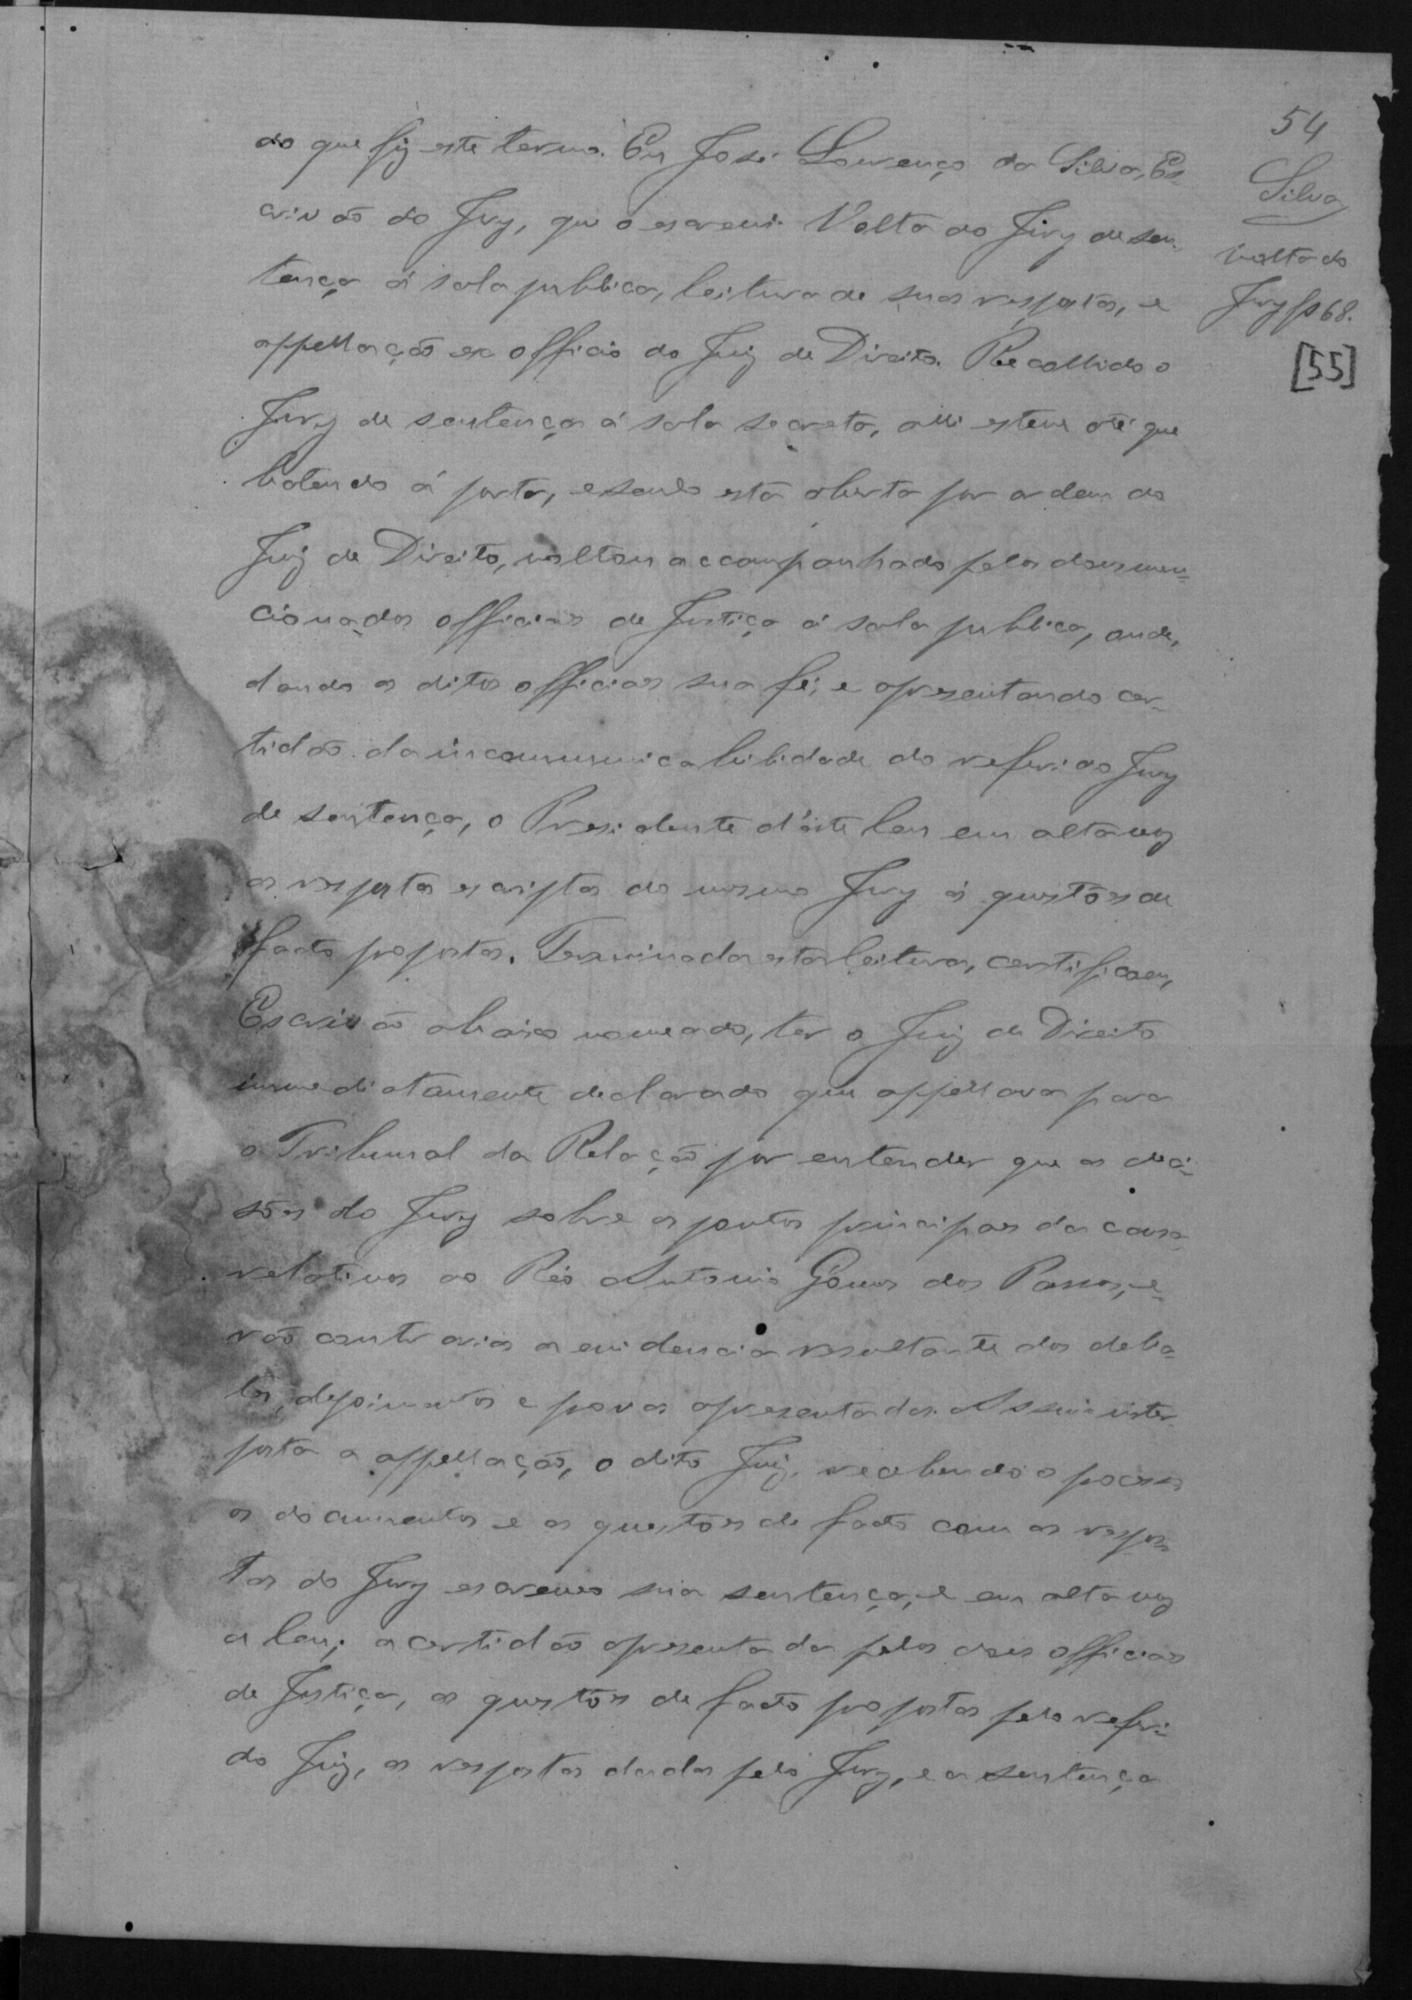 54
Silva
Volta do
Jury fs 68.
[55]
do que fiz este termo. Eu José Lourenço da Silva, Es-
crivão do Jury, que o escrevi. Volta do Jury de sen-
tença á sala publica, leitura de suas respostas, e
appellação ex officio do Juiz de Direito. Recolhido o
Jury de sentença á sala secreta, alli esteve até que
batendo á porta, e sendo esta aberta por ordem do
Juiz de Direito, voltou accompanhado pelos dous men-
cionados officiaes de Justiça á sala publica, onde,
dando os ditos officiaes sua fé, e apresentando cer-
tidão da incommunicabilidade do referido Jury
de sentença, o Presidente d'este leu em alta voz
as respostas escriptas do mesmo Jury ás questões de
facto propostas. Terminada esta leitura, certifico eu,
Escrivão abaixo nomeado, ter o Juiz de Direito
immediatamente declarado que appellava para
o Tribunal da Relação por entender que as deci-
sões do Jury sobre os pontos principaes da causa
relativos ao Réo Antonio Gomes dos Passos, e-
rão contrarias a evidencia resultante dos deba-
tes, depoimentos e provas apresentadas. Assim inter-
posta a appellação, o dito Juiz, recebendo o processo
os documentos e as questões de facto com as respos-
tas do Jury escreveo sua sentença, e em alta voz
a leu; a certidão apresentada pelos dous officiaes
de Justiça, as questões de facto propostas pelo referi-
do Juiz, as respostas dadas pelo Jury, e a sentença